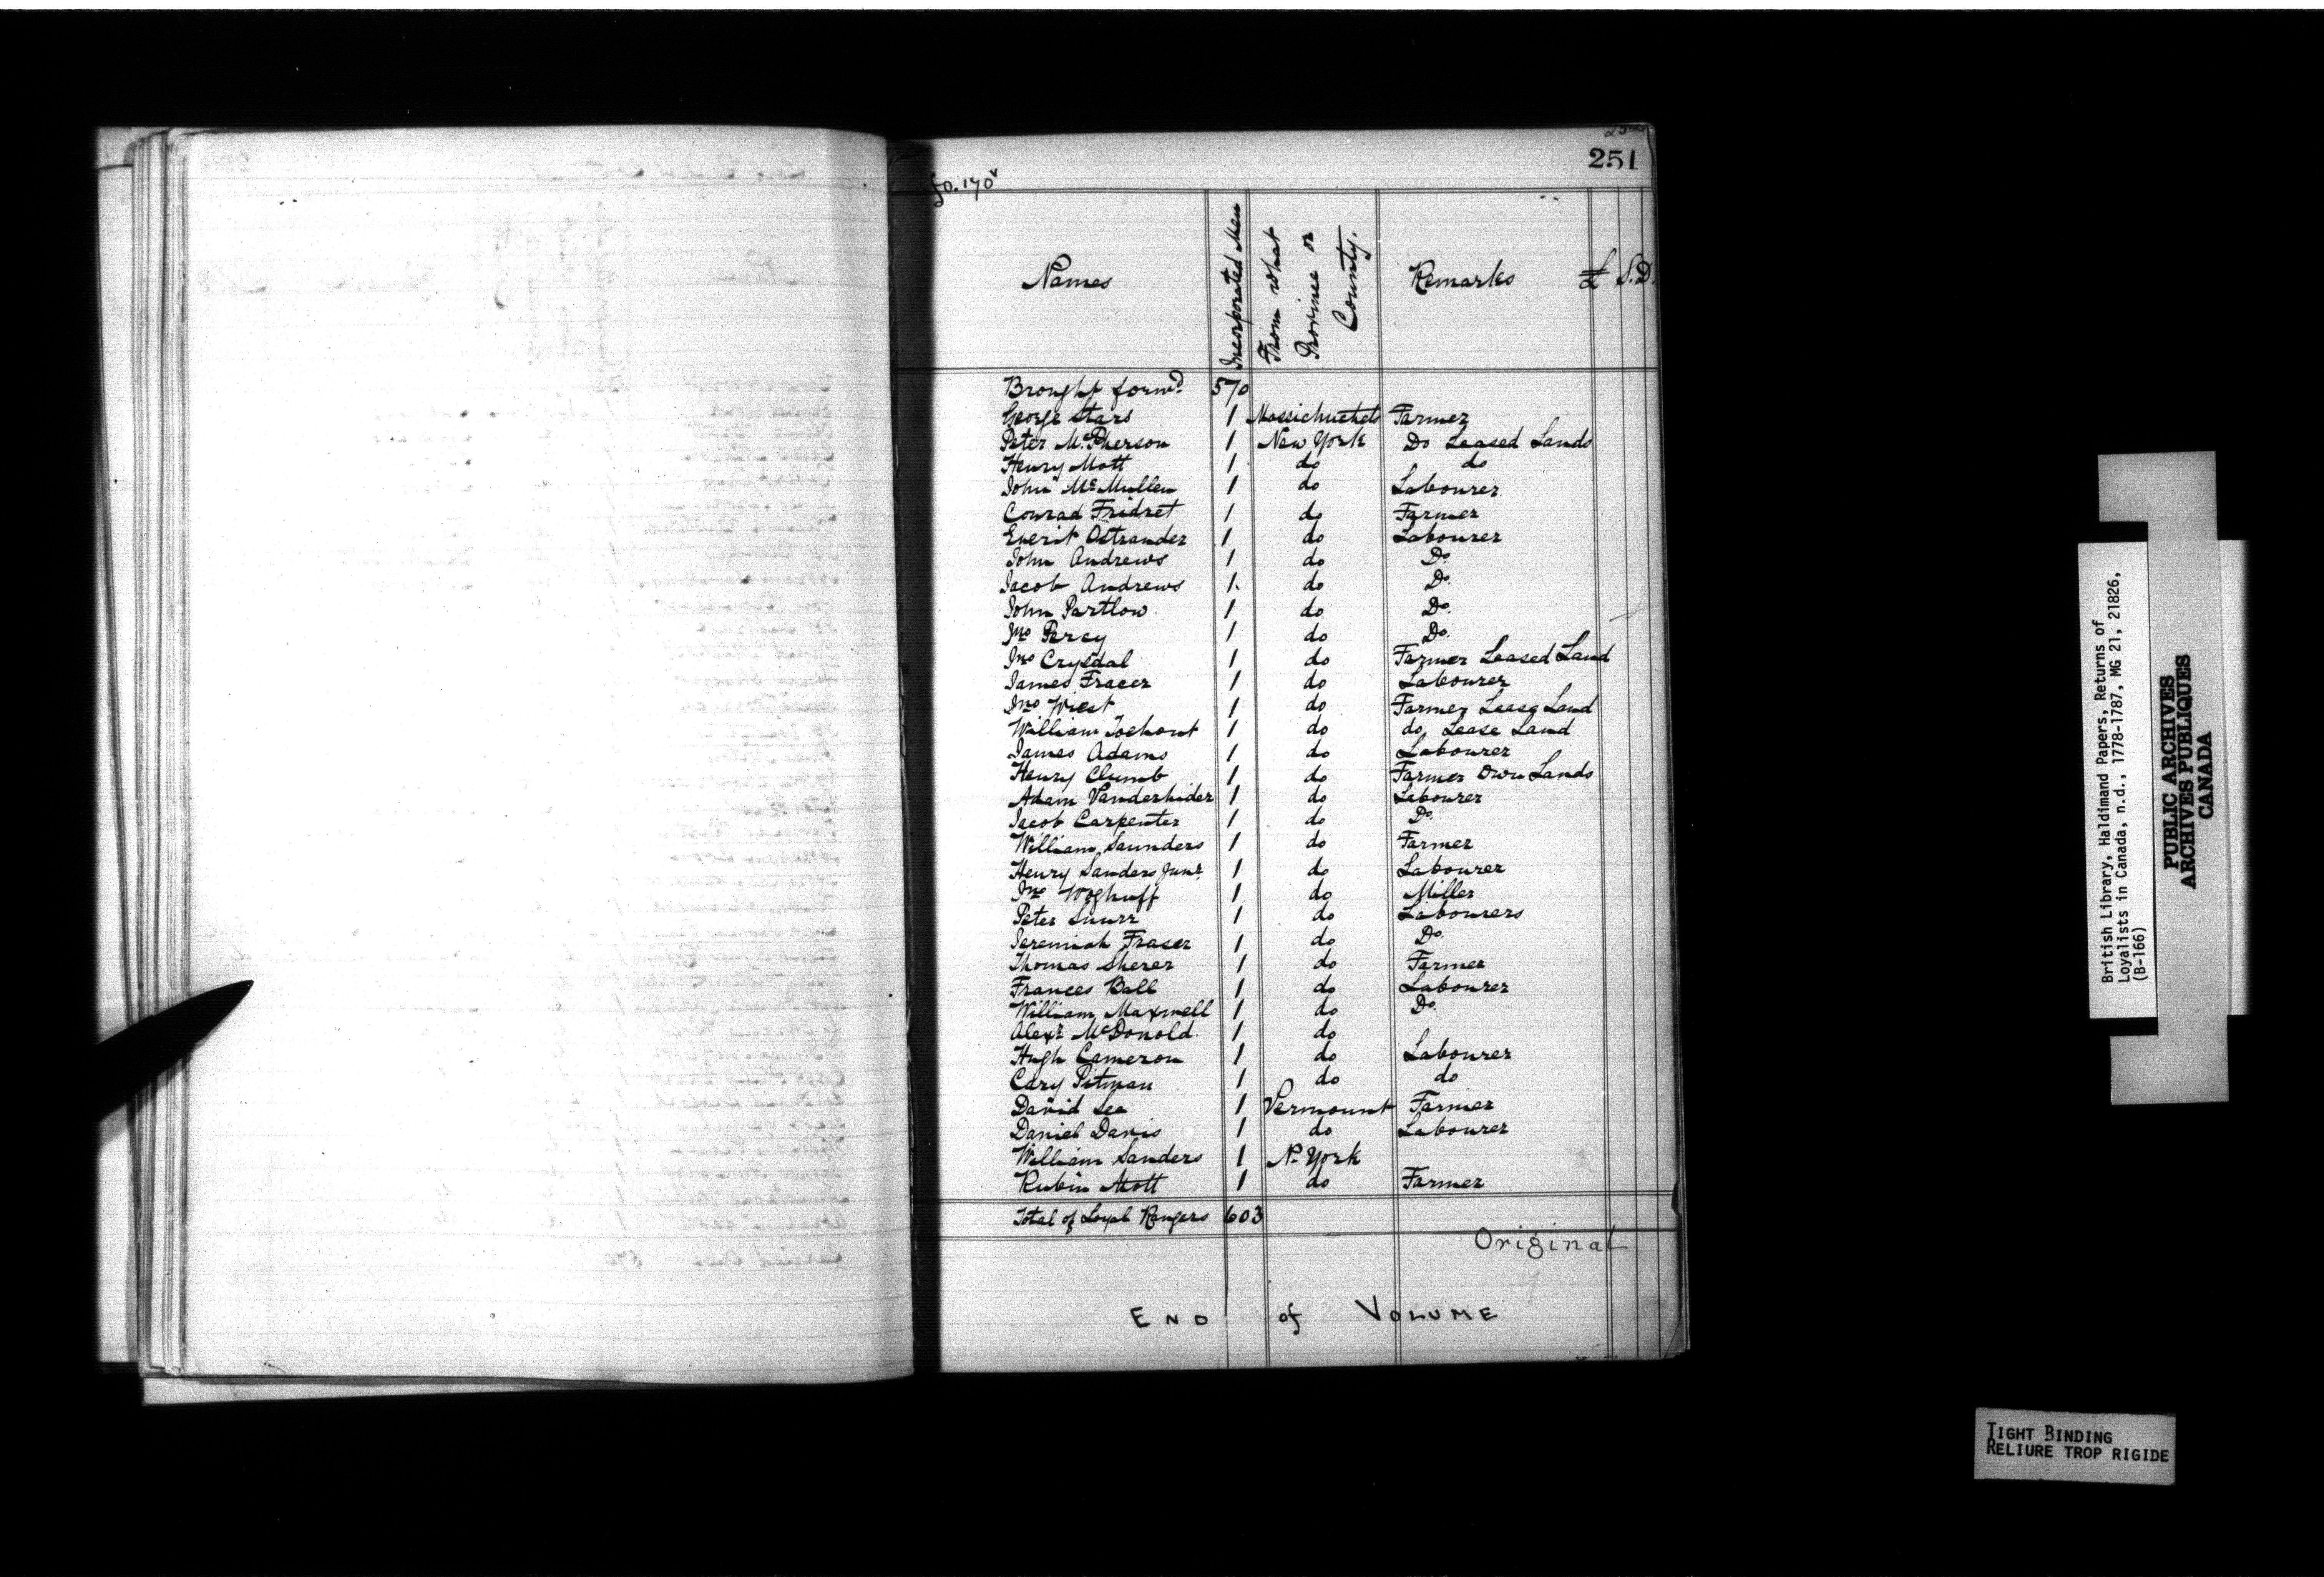 251
fo. 170v
Names
Incorporated Men
From what Province or County.
Remarks
£ S. D.
Brought forwd 570
George Stars 1 Massichuchets Farmer
Peter McPherson 1 New York Do Leased Lands
Henry Mott 1 do do
John McMullen 1 do Labourer
Conrad Fridret 1 do Farmer
Everit Ostrander 1 do Labourer
John Andrews 1 do Do
Jacob Andrews 1 do Do
John Partlow 1 do Do
Jno Percy 1 do Do
Jno Crysdal 1 do Farmer Leased Land
James Fracer 1 do Labourer
Jno Wiest 1 do Farmer Lease Land
William 1 do do Lease Land
James Adams 1 do Labourer
Henry Clumb 1 do Farmer Own Lands
Adam Vanderhider 1 do Labourer
Jacob Carpenter 1 do Do
William Saunders 1 do Farmer
Henry Sanders Junr 1 do Labourer
Jno 1 do Miller
Peter 1 do Labourers
Jeremiah Fraser 1 do Do
Thomas Sherer 1 do Farmer
Frances Ball 1 do Labourer
William Maxwell 1 do Do
Alexr McDonold 1 do
Hugh Cameron 1 do Labourer
Cary Pitman 1 do do
David Lee 1 Vermount Farmer
Daniel Davis 1 do Labourer
William Sanders 1 N. York
Rubin Mott 1 do Farmer
Total of Loyal Rangers 603
Original
END of VOLUME
British Library, Haldimand Papers, Returns of
Loyalists in Canada, n.d., 1778-1787, MG 21, 21826,
(B-166)
PUBLIC ARCHIVES
ARCHIVES PUBLIQUES
CANADA
TIGHT BINDING
RELIURE TROP RIGIDE